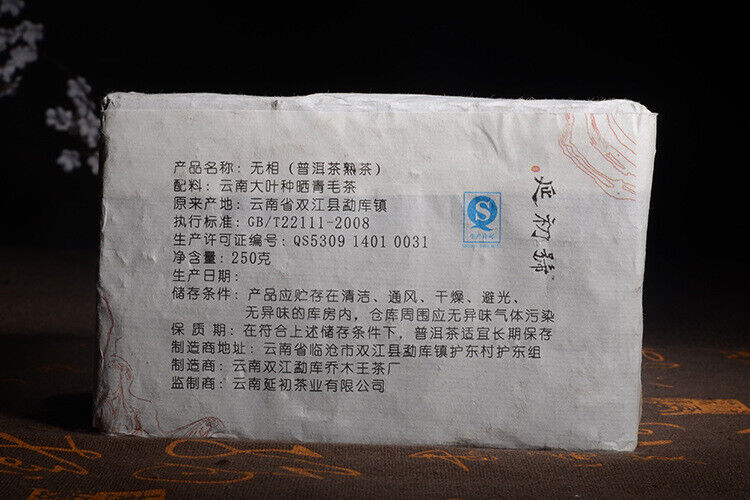 产品名称：无相（普洱茶熟茶）
配料：云南大叶种晒青毛茶
原来产地：云南省双江县勐库镇
执行标准：GB/T22111-2008
生产许可证编号：QS5309 1401 0031
净含量：250克
生产日期：
储存条件：产品应贮存在清洁、通风、干燥、避光、
无异味的库房内，仓库周围应无异味气体污染
保 质 期：在符合上述储存条件下，普洱茶适宜长期保存
制造商地址：云南省临沧市双江县勐库镇护东村护东组
制造商：云南双江勐库乔木王茶厂
监制商：云南延初茶业有限公司
生产许可
延初号